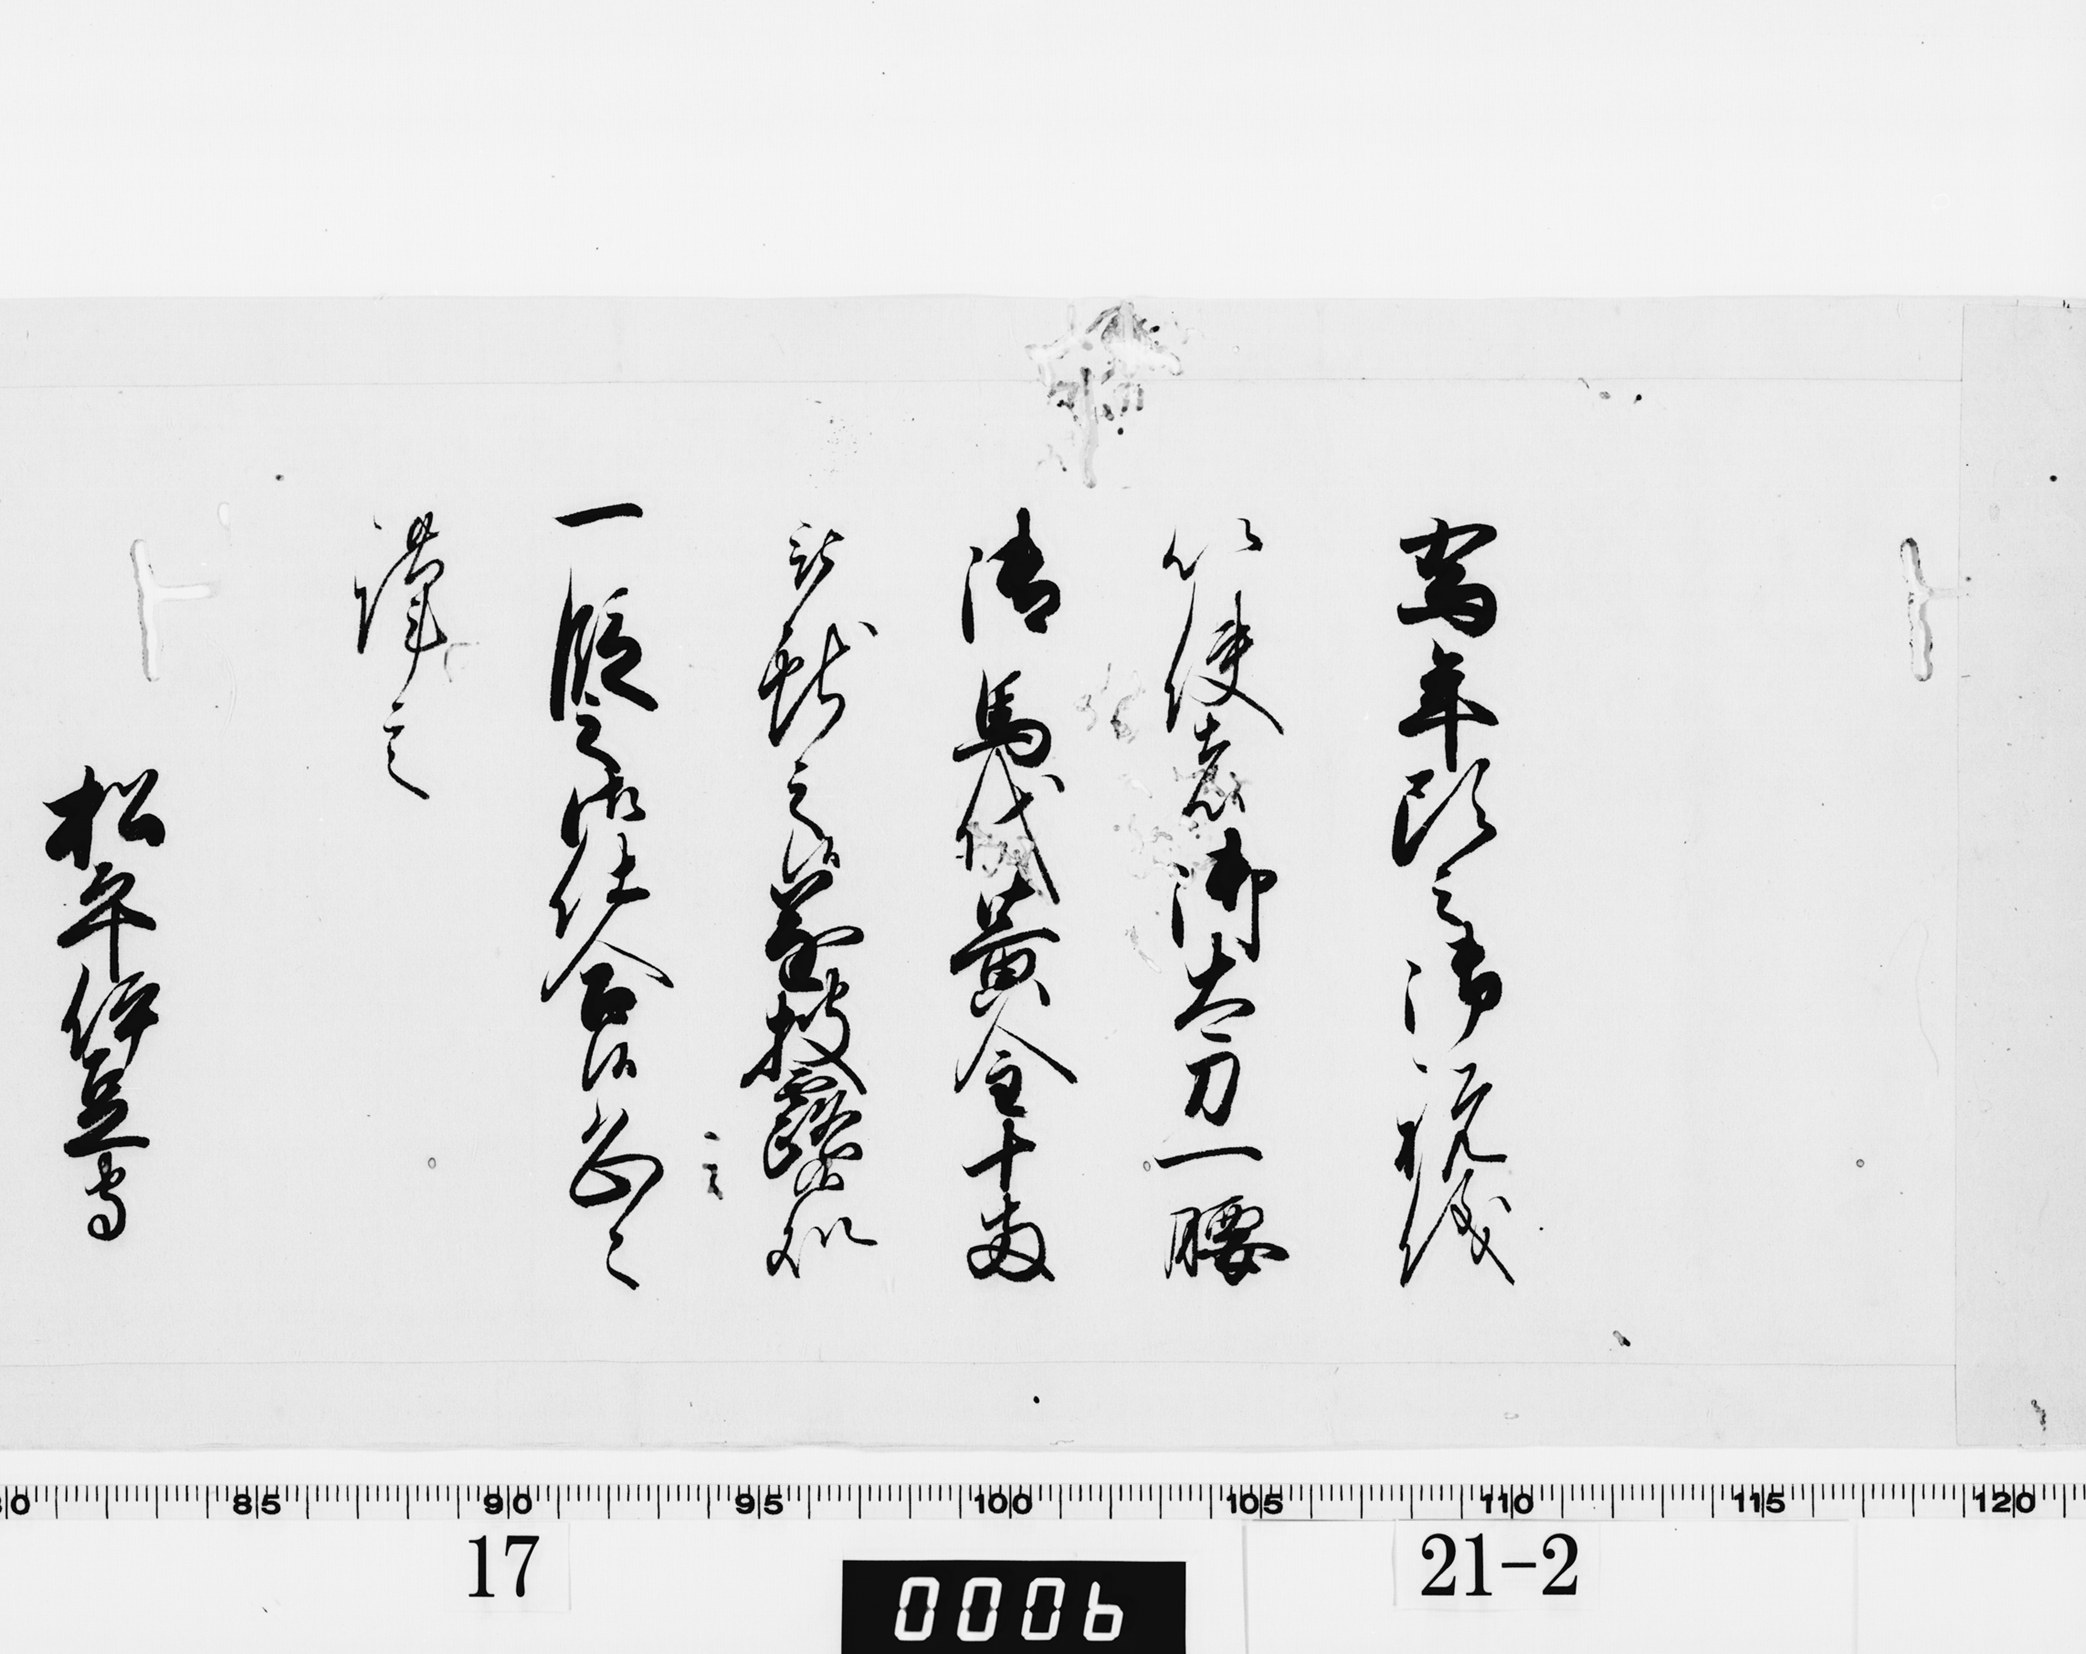 為年頭之御祝儀
以使者御太刀一腰
御馬代黄金十両
被献之候遂披露候処
一段之御仕合候恐々
謹言
松平伊豆守
80 85 90 95 100 105 110 115 120
17
21-2
0006